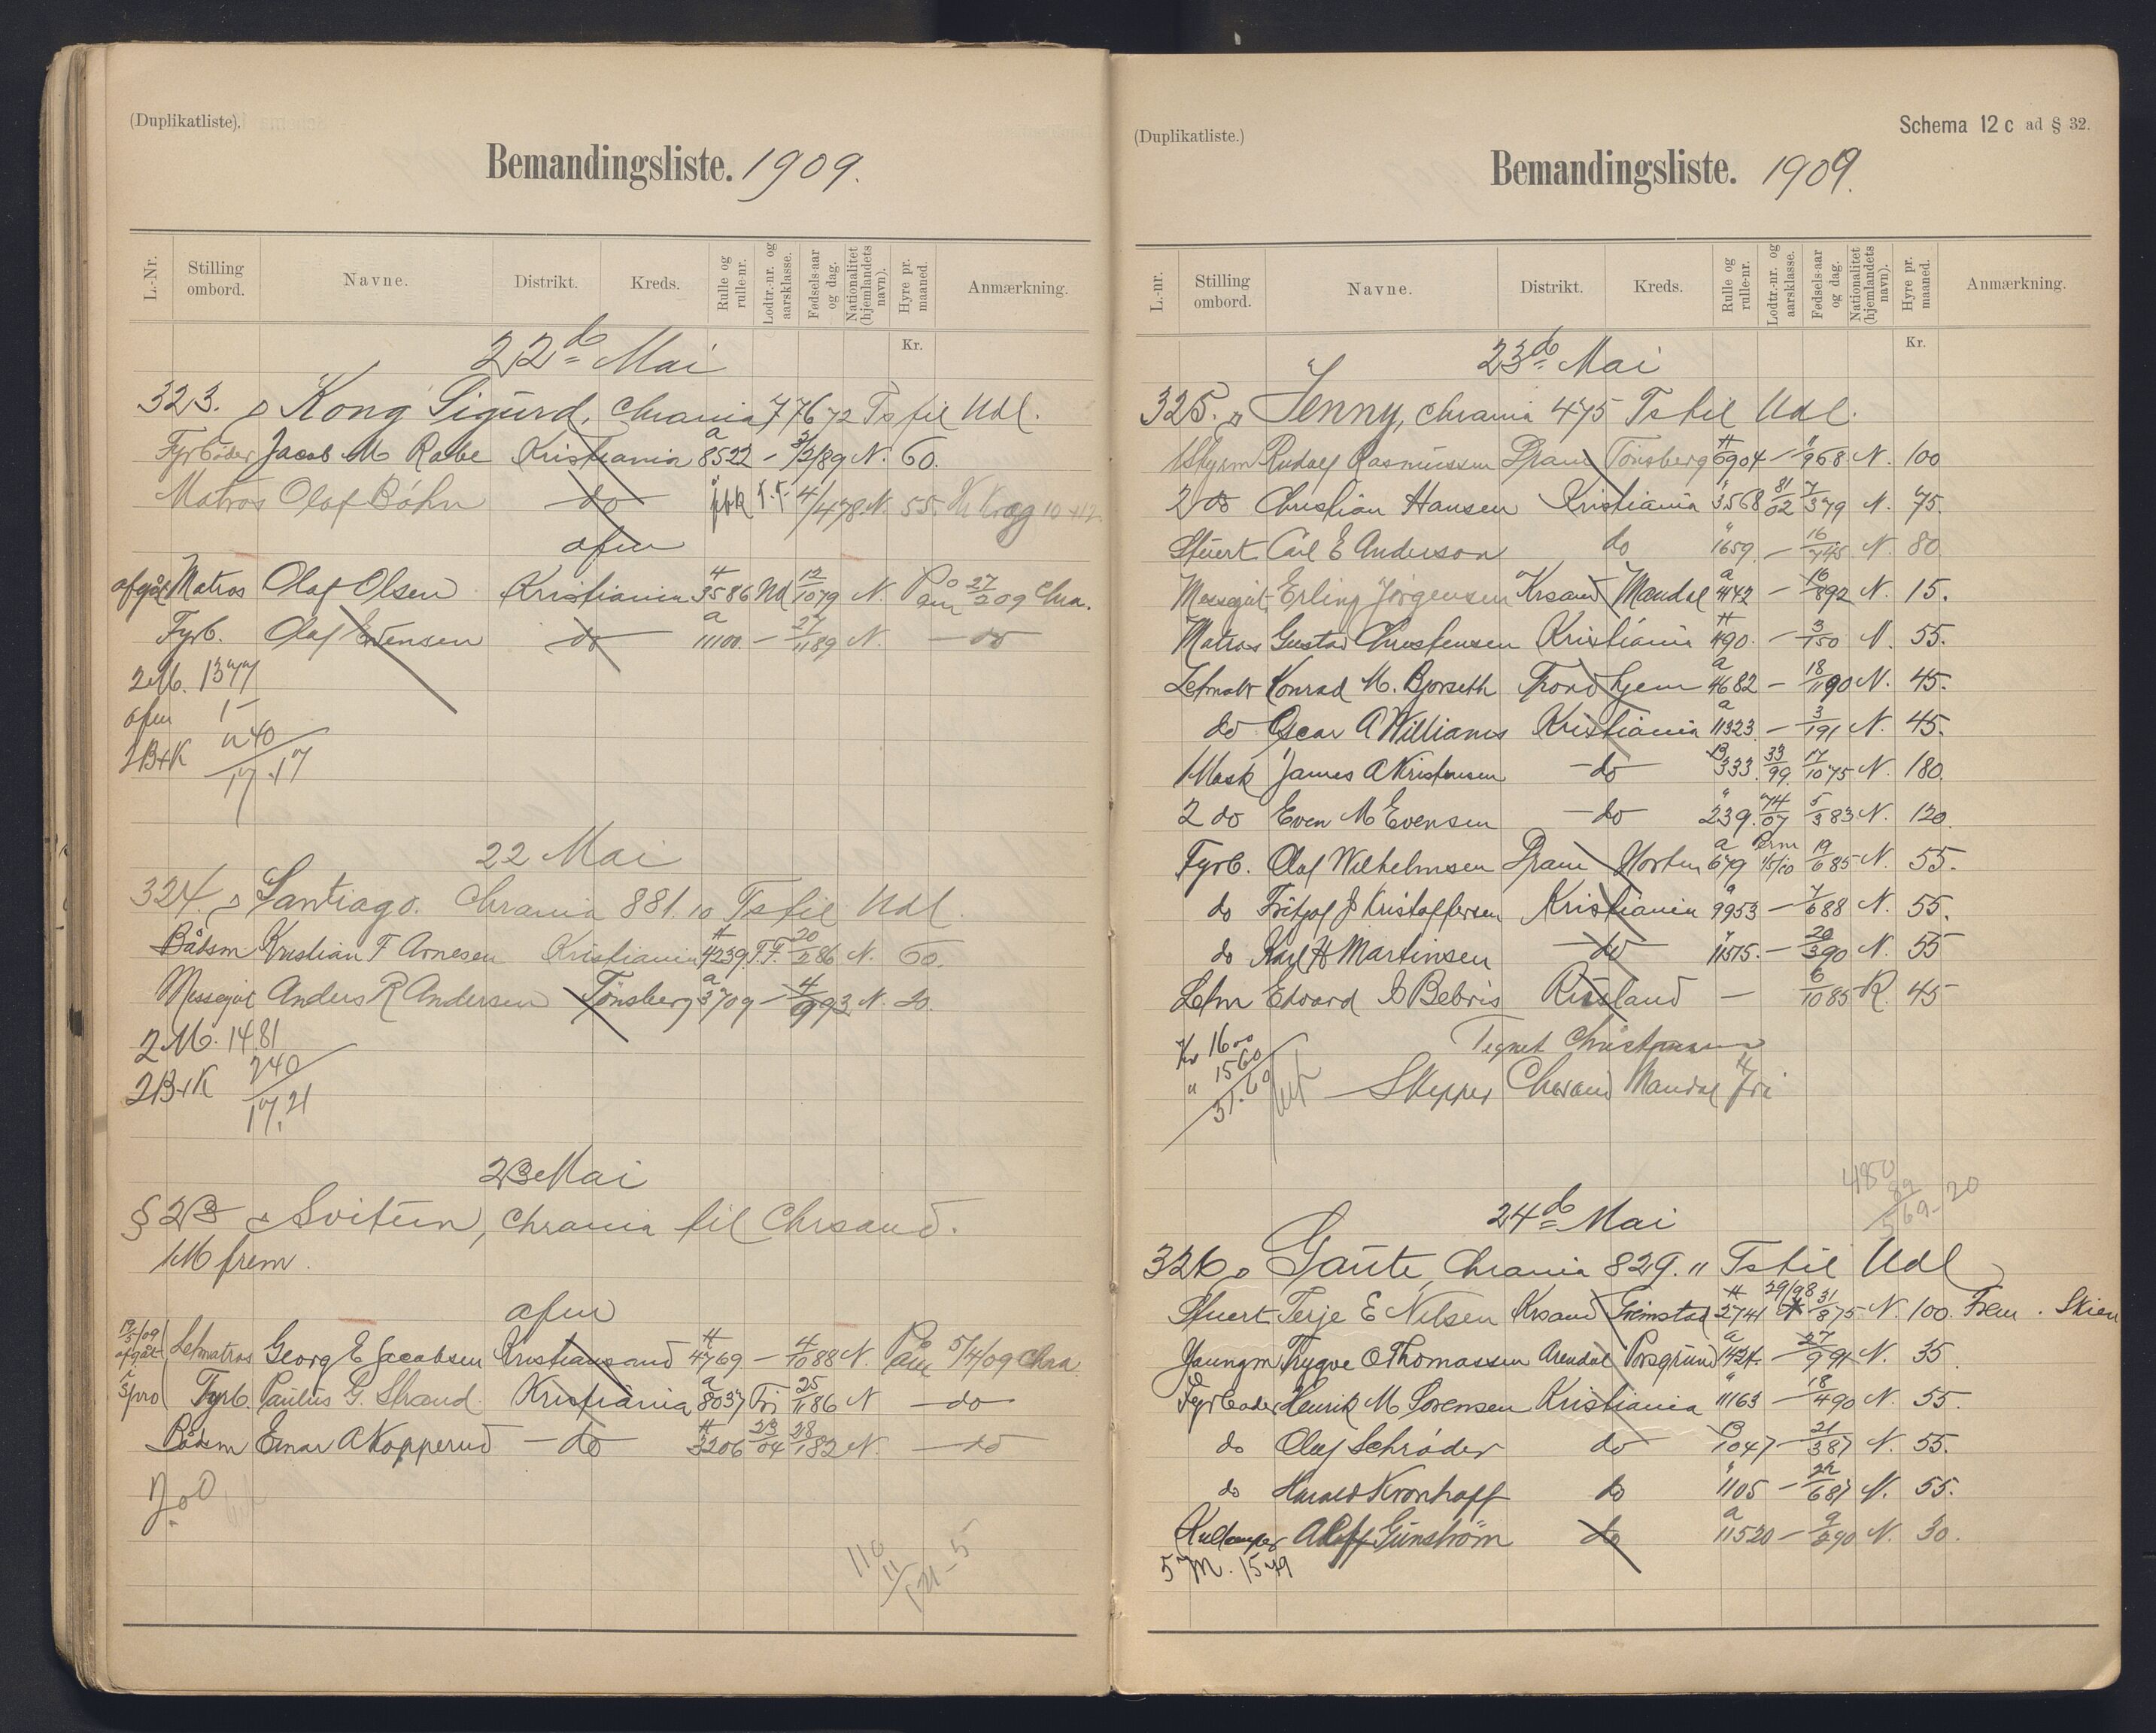 (Duplikatliste).
Bemandingsliste. 1909.
L.-Nr. Stilling ombord. Navne. Distrikt. Kreds. Rulle og rulle-nr. Lodtr.-nr. og aarsklasse. Fødsels-aar og dag. Nationalitet (hjemlandets navn). Hyre pr. maaned. Anmærkning.
Kr.
22de Mai
323. Kong Sigurd, Chrania 776 72 Ts til Udl.
Fyrbøder Jacob M Rabe Kristiania a 8522 – 3/2/89 N. 60.
Matros Olaf Bøhn do 4/4 78 N. 55.
afm
afgåt Matros Olaf Olsen Kristiania H 3586 12/10 79 N. På am 27/2 09 Chra.
Fyrb. Olaf Evensen do a 11100. – 27/11 89 N. – do
2M. 1377
afm 1-
2B+K 240
17.17
22 Mai
324. Santiago. Chrania 881.10 Ts til Udl.
Båtsm Kristian F Arnesen Kristiania H 4239 F.F. 20/2 86 N. 60.
Messegut Anders R Andersen Tønsberg a 3709 – 4/9 93 N. 20.
2M. 14.81
2B+K 240
17.21
23 Mai
§ 23 Svitun, Chrania til Chrsand.
1M frem.
afm
19/5/09 afgåt Letmatros Georg E Jacobsen Kristiansand H 4769 – 4/10 88 N. På am 5/4/09 Chra
Fyrb. Paulus G. Strand Kristiania a 8037 Fri 25/11 86 N – do –
Båtsm Einar A Kopperud – do H 3206 23/04 28/1 82 N. – do
(Duplikatliste.)
Schema 12 c ad § 32.
Bemandingsliste. 1909.
L.-nr. Stilling ombord. Navne. Distrikt. Kreds. Rulle og rulle-nr. Lodtr.-nr. og aarsklasse. Fødsels-aar og dag. Nationalitet (hjemlandets navn). Hyre pr. maaned. Anmærkning.
Kr.
23de Mai
325. Jenny, Chrania 475 Ts til Udl.
1Styrm Rudolf Rasmussen Dram Tönsberg H 6904 – 9 68 N. 100
2 do Christian Hansen Kristiania " 3568 81/02 7/3 79 N. 75.
Stuert Carl E Anderson do " 1659. – 16/7 45 N. 80
Messegut Erling Jörgensen Krsand Mandal a 4142 – 16/8 92 N. 15.
Matros Gustav Christensen Kristiania H 490. – 3/1 50 N. 55.
Letmatr Konrad M. Bjorseth Trondhjem a 4682 – 18/11 90 N. 45.
do Oscar A Williams Kristiania a 11323 – 3/1 91 N. 45.
1Mask James A Kristensen – do B 333. 33/99. 17/10 75 N. 180.
2 do Even M Evensen – do " 239. 74/07 5/3 83 N. 120.
Fyrb. Olaf Wilhelmsen Dram Horten a 679 19/6 85 N. 55.
do Fritjof J Kristoffersen Kristiania a 9953 – 7/6 88 N. 55.
do Karl H Martinsen do " 11575. – 20/3 90 N. 55
Letm Edvard I Bebris Russland – 6/10 85 R. 45
Kr 16 00
" 15 60
31.60
Skipper Chrsand Mandal Fri
24de Mai
326. Gaute, Chrania 829." Ts til Udl
Stuert Terje E Nilsen Krsand Grimstad H 2741 29/98 31/8 75 N. 100. Frem. Skien
Jaungm Trygve O Thomassen Arendal Porsgrund a 1424. – 27/9 91 N. 35.
Fyrbøder Henrik M Sorensen Kristiania " 11163 – 18/4 90 N. 55.
do Olaf Schrøder do B 1047 – 21/3 87 N. 55.
do Harald Kronhoff do " 1105 – 22/6 87 N. 55.
Kullemper Alf Günström do a 11520 – 9/2 90 N. 30.
5 M. 1579